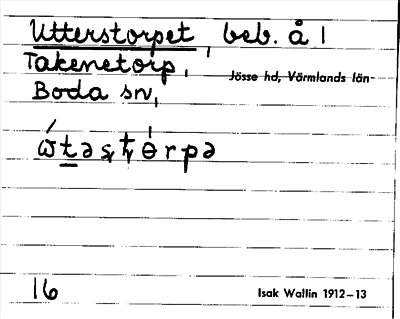 Utterstorpet, beb. å 1
Takenetorp,
Jösse hd, Värmlands län
Boda sn,
ώt̲əsţɵrpə
16
Isak Wallin 1912–13